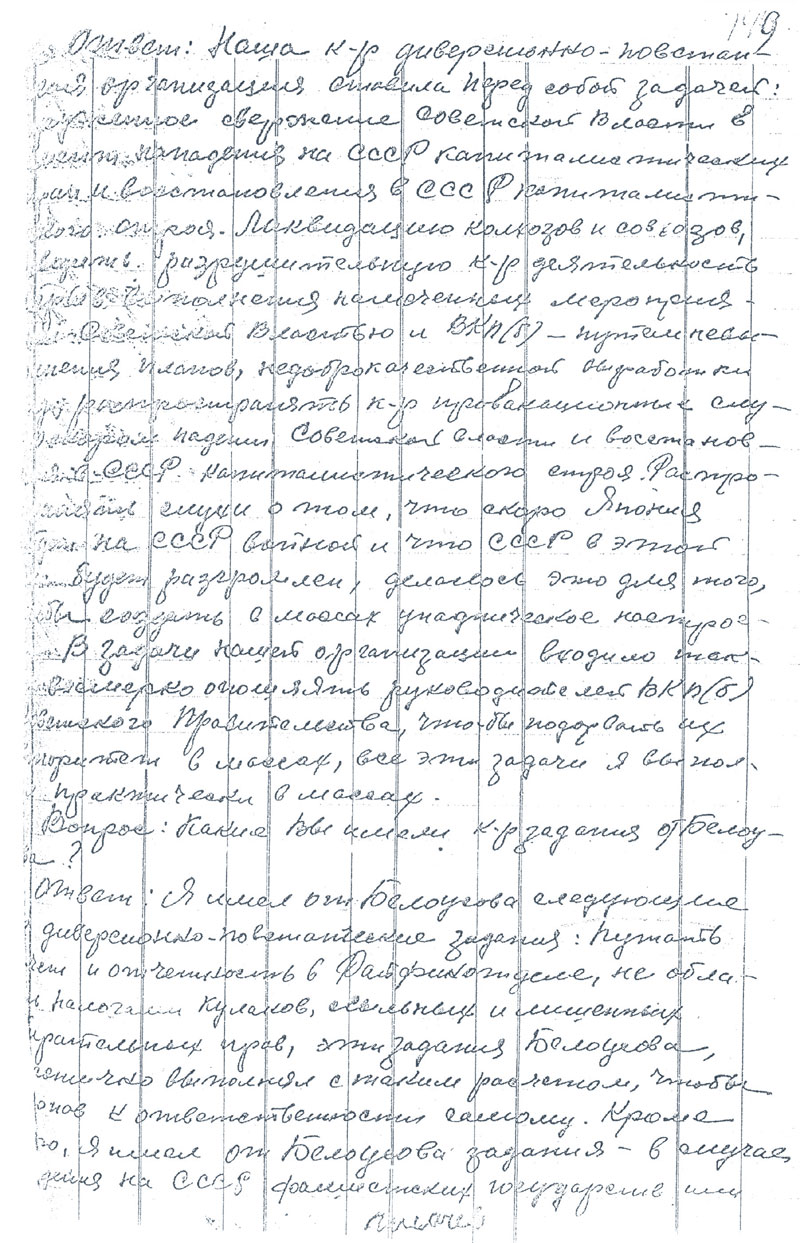 149
Ответ: Наша к-р диверсионно-повстан-
организация ставила перед собой задачей:
свержение Советской Власти в
нападения на СССР капиталистических
и восстановления в СССР капиталисти-
строя. Ликвидацию колхозов и совхозов,
разрушительную к-р деятельность
выполнения намеченных мероприя-
Советской Властью и ВКП(б) – путем невы-
нения планов, недоброкачественной выработки
распространять к-р провакационные слу-
падении Советской власти и восстанов-
СССР капиталистического строя. Распро-
слухи о том, что скоро Япония
на СССР войной и что СССР в этой
будет разгромлен, делалось это для того,
бы создать в массах упадническое настрое-
В задачи нашей организации входило так-
опошлять руководителей ВКП(б)
Правительства, что-бы подорвать их
в массах, все эти задачи я выпол-
практически в массах.
Вопрос: Какие Вы имели к-р задания от Белоу-
ва?
Ответ: Я имел от Белоусова следующие
диверсионно-повстанческие задания: Путать
и отчетность в Райфинотделе, не обла-
налогами кулаков, ссыльных и лишенных
прав, эти задания Белоусова,
выполнял с таким расчетом, чтобы
к ответственности самому. Кроме
го, я имел от Белоусова задания – в случае
дения на СССР фашистских государств или